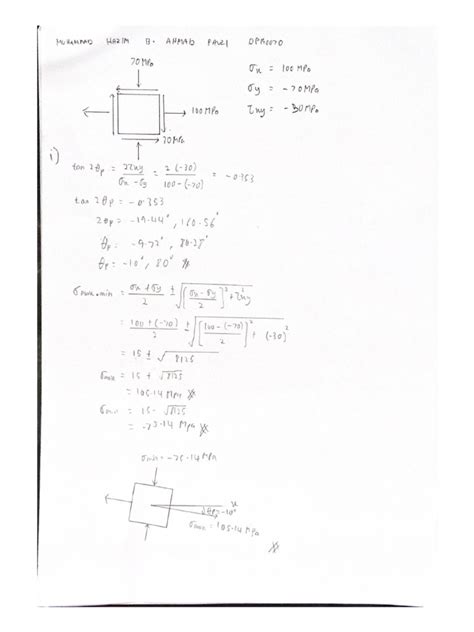 MUHAMMAD HAZIM B. AHMAD FAUZI
70MPa
100MPa
70MPa
σx = 100MPa
σy = -70MPa
τxy = -30MPa
i)
tan 2θp = 2τxy / σx - σy = 2(-30) / 100-(-70) = -0.353
tan 2θp = -0.353
2θp = -19.44°, 160.56°
θp = -9.72°, 80.28°
θp = -10°, 80°
σmax,min = σx + σy / 2 ± √[σx - σy / 2]² + τ²xy
= 100 + (-70) / 2 ± √[100 - (-70) / 2]² + (-30)²
= 15 ± √8125
σmax = 15 + √8125
= 105.14 MPa
σmin = 15 - √8125
= -75.14 MPa
σmin = -75.14 MPa
x
θp = -10°
σmax = 105.14 MPa